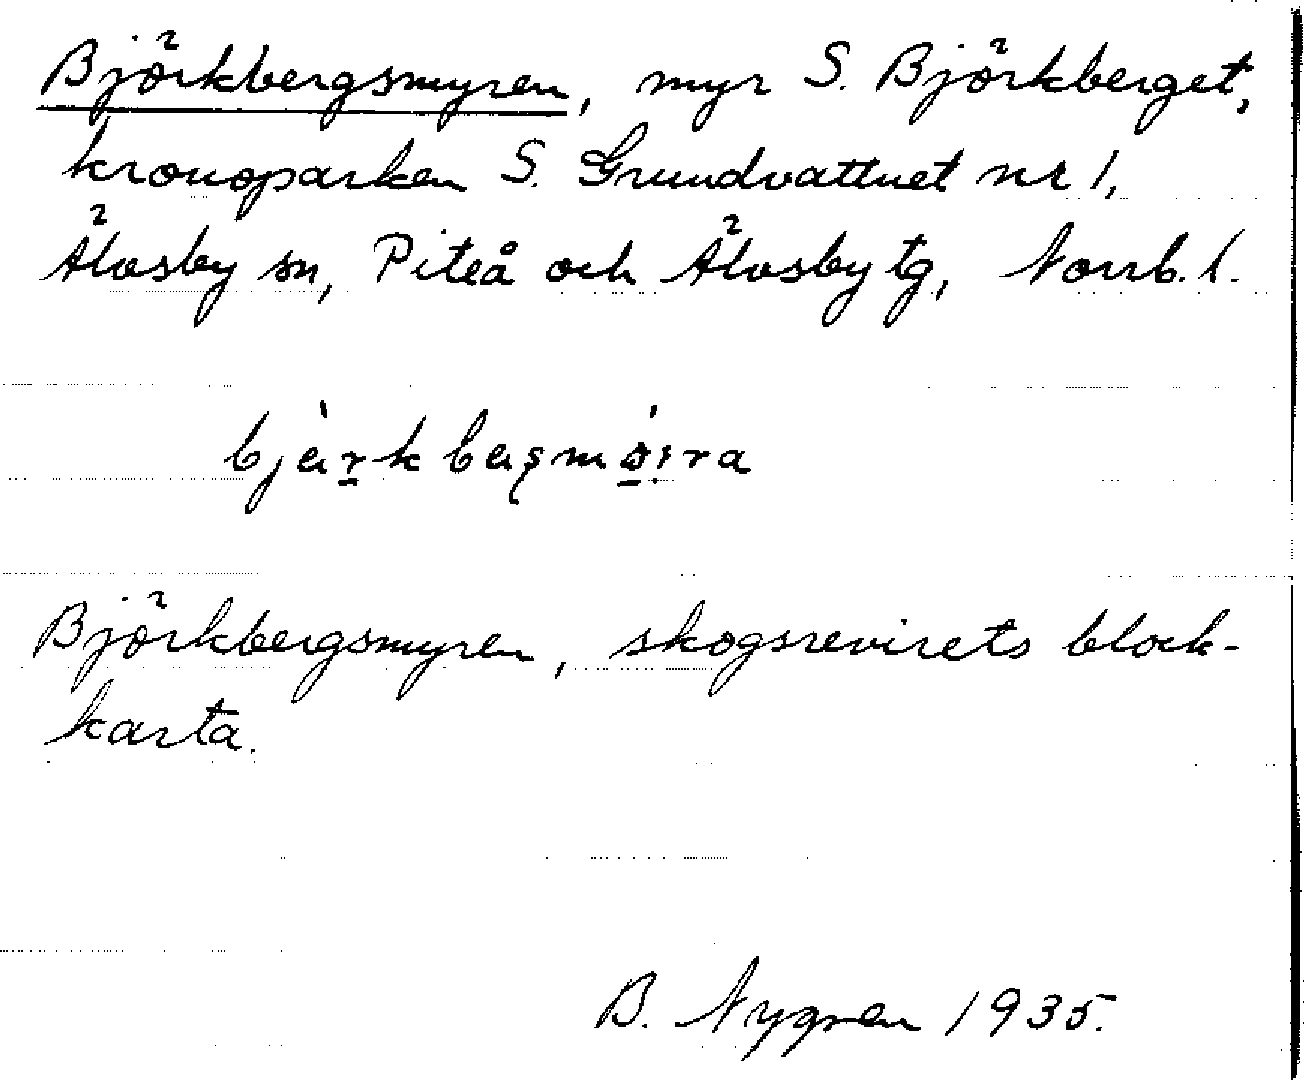 Björkbergsmyren, myr S. Björkberget,
kronoparken S. Grundvattnet nr 1,
Älvsby sn, Piteå och Älvsby tg, Norrb. l.
Björkbergsmyren, skogsrevirets block-
karta.
B. Nygren 1935.